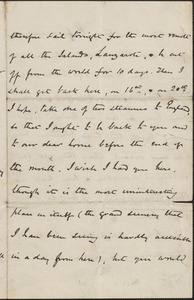 therefore sail tonight for the most north
of all the Islands, Lanzarote, & be cut
off from the world for 10 days. Then I
shall get back here, on 16th, & on 20th
I hope, take one of two steamers to England
so that I ought to be back to you and
to our dear home before the end of
the month. I wish I had you here,
though it is the most uninteresting
place in itself (the grand scenery that
I have been seeing is hardly accessible
in a day from here), but you would